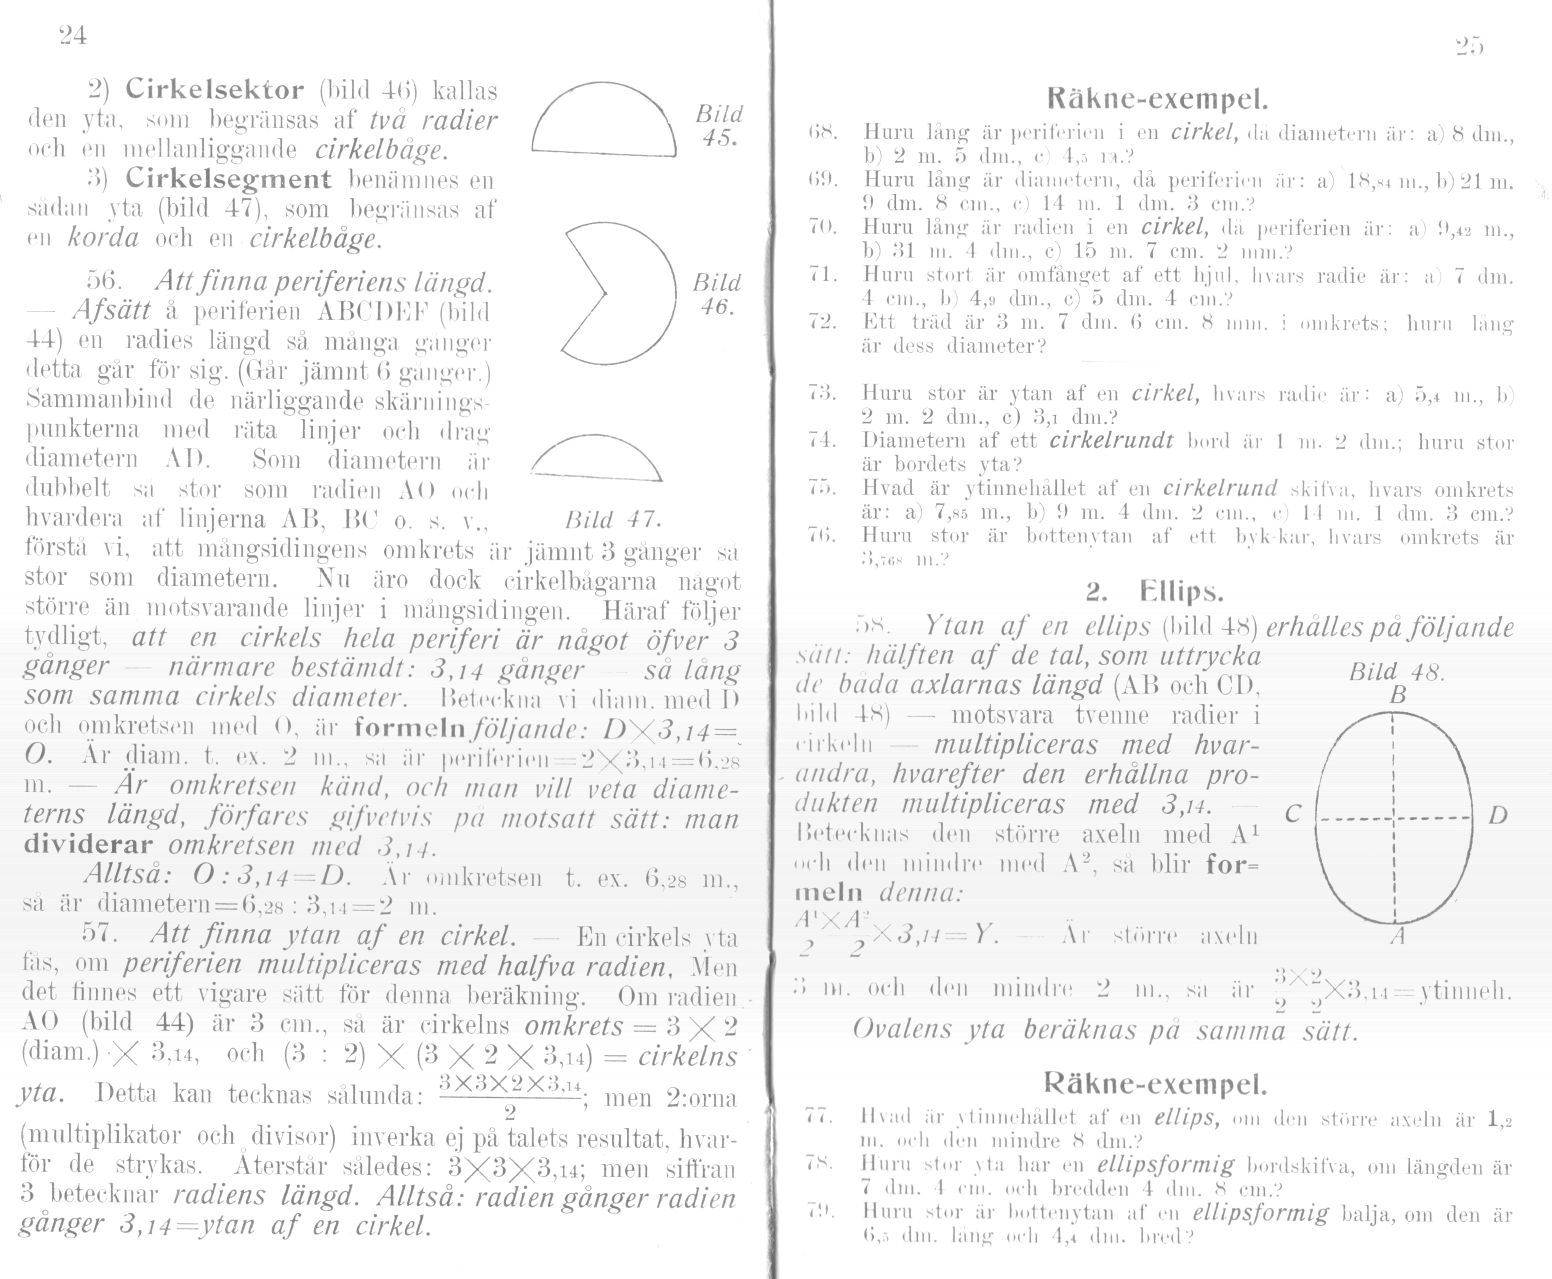 24
2) Cirkelsektor (bild 46) kallas
den yta, som begränsas af två radier
och en mellanliggande cirkelbåge.
3) Cirkelsegment benämnes en
sådan yta (bild 47), som begränsas af
en korda och en cirkelbåge.
Bild
45.
56. Att finna periferiens längd.
— Afsätt å periferien ABCDEF (bild
44) en radies längd så många gånger
detta går för sig. (Går jämnt 6 gånger.)
Sammanbind de närliggande skärnings-
punkterna med räta linjer och drag
diametern AD. Som diametern är
dubbelt så stor som radien AO och
hvardera af linjerna AB, BC o. s. v.,
Bild
46.
Bild 47.
förstå vi, att mångsidingens omkrets är jämnt 3 gånger så
stor som diametern. Nu äro dock cirkelbågarna något
större än motsvarande linjer i mångsidingen. Häraf följer
tydligt, att en cirkels hela periferi är något öfver 3
gånger — närmare bestämdt: 3,14 gånger — så lång
som samma cirkels diameter. Beteckna vi diam. med D
och omkretsen med O, är formeln följande: D×3,14=
O. Är diam. t. ex. 2 m., så är periferien=2×3,14=6,28
m. — Är omkretsen känd, och man vill veta diame-
terns längd, förfares gifvetvis på motsatt sätt: man
dividerar omkretsen med 3,14.
Alltså: O : 3,14=D. Är omkretsen t. ex. 6,28 m.,
så är diametern=6,28 : 3,14=2 m.
57. Att finna ytan af en cirkel. — En cirkels yta
fås, om periferien multipliceras med halfva radien, Men
det finnes ett vigare sätt för denna beräkning. Om radien
AO (bild 44) är 3 cm., så är cirkelns omkrets = 3 × 2
(diam.) × 3,14, och (3 : 2) × (3 × 2 × 3,14) = cirkelns
yta. Detta kan tecknas sålunda: 3×3×2×3,14/2; men 2:orna
(multiplikator och divisor) inverka ej på talets resultat, hvar-
för de strykas. Återstår således: 3×3×3,14; men siffran
3 betecknar radiens längd. Alltså: radien gånger radien
gånger 3,14=ytan af en cirkel.
25
Räkne-exempel.
68. Huru lång är periferien i en cirkel, då diametern är: a) 8 dm.,
b) 2 m. 5 dm., c) 4,5 m.?
69. Huru lång är diametern, då periferien är: a) 18,84 m., b) 21 m.
9 dm. 8 cm., c) 14 m. 1 dm. 3 cm.?
70. Huru lång är radien i en cirkel, då periferien är: a) 9,42 m.,
b) 31 m. 4 dm., c) 15 m. 7 cm. 2 mm.?
71. Huru stort är omfånget af ett hjul, hvars radie är: a) 7 dm.
4 cm., b) 4,9 dm., c) 5 dm. 4 cm.?
72. Ett träd är 3 m. 7 dm. 6 cm. 8 mm. i omkrets; huru lång
är dess diameter?
73. Huru stor är ytan af en cirkel, hvars radie är: a) 5,4 m., b)
2 m. 2 dm., c) 3,1 dm.?
74. Diametern af ett cirkelrundt bord är 1 m. 2 dm.; huru stor
är bordets yta?
75. Hvad är ytinnehållet af en cirkelrund skifva, hvars omkrets
är: a) 7,85 m., b) 9 m. 4 dm. 2 cm., c) 14 m. 1 dm. 3 cm.?
76. Huru stor är bottenytan af ett byk-kar, hvars omkrets är
3,768 m.?
2. Ellips.
58. Ytan af en ellips (bild 48) erhålles på följande
sätt: hälften af de tal, som uttrycka
de båda axlarnas längd (AB och CD,
bild 48) — motsvara tvenne radier i
cirkeln — multipliceras med hvar-
andra, hvarefter den erhållna pro-
dukten multipliceras med 3,14. —
Betecknas den större axeln med A¹
och den mindre med A², så blir for-
meln denna:
Bild 48.
B
C
D
A
A¹/2×A²/2×3,14=Y. — Är större axeln
3 m. och den mindre 2 m., så är 3/2×2/2×3,14=ytinneh.
Ovalens yta beräknas på samma sätt.
Räkne-exempel.
77. Hvad är ytinnehållet af en ellips, om den större axeln är 1,2
m. och den mindre 8 dm.?
78. Huru stor yta har en ellipsformig bordskifva, om längden är
7 dm. 4 cm. och bredden 4 dm. 8 cm.?
79. Huru stor är bottenytan af en ellipsformig balja, om den är
6,5 dm. lång och 4,4 dm. bred?